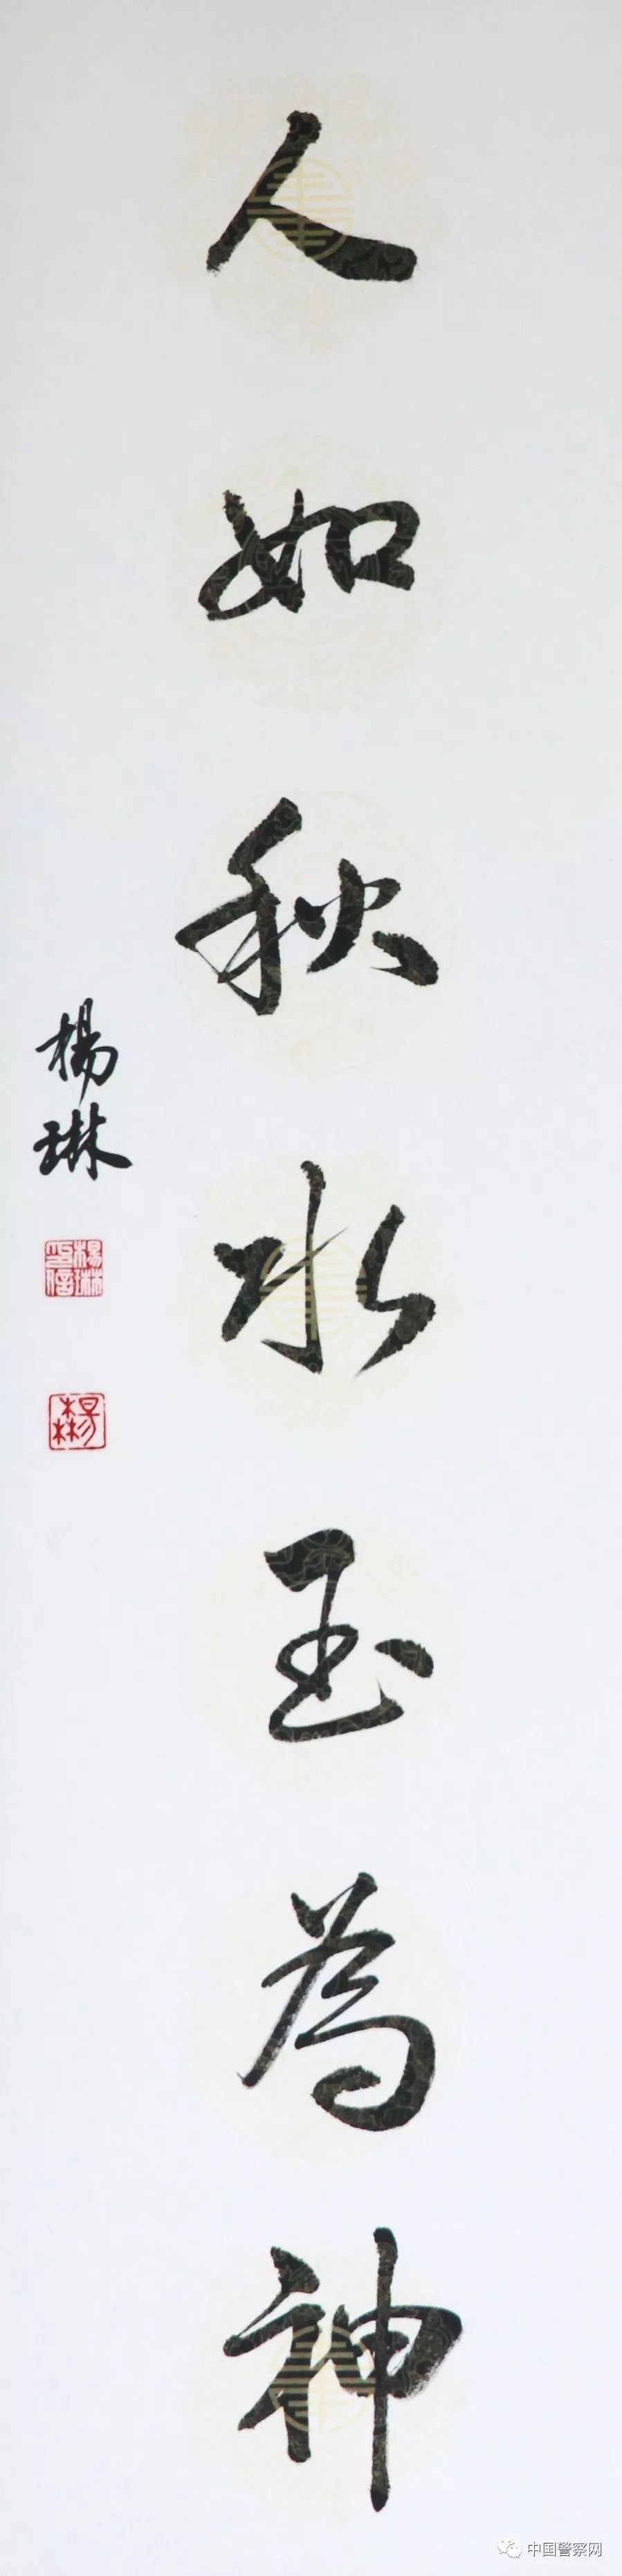 人如秋水玉為神
楊琳
楊琳印信
楊森
中国警察网